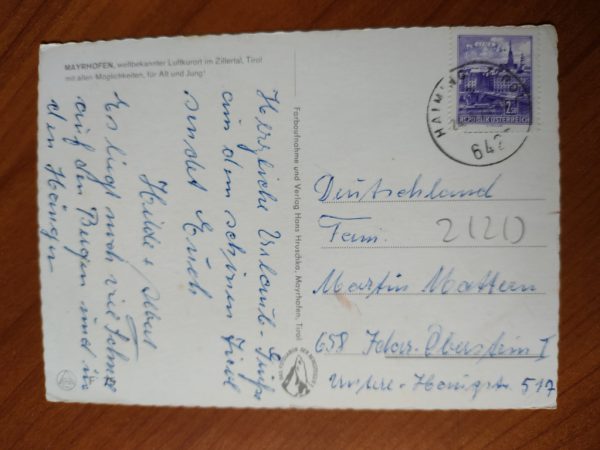 MAYRHOFEN, weltbekannter Luftkurort im Zillertal, Tirol
mit allen Möglichkeiten, für Alt und Jung!
Herzliche Urlaub-Grüße
aus dem schönen Tirol
sendet Euch
Hilde + Albert
Es liegt noch viel Schnee
auf den Bergen und in
den Hängen
Farbaufnahme und Verlag Hans Hruschka, Mayrhofen, Tirol
HAIMING
642
2.
REPUBLIK ÖSTERREICH
Deutschland
Fam. 2120
Martin Mattern
658 Idar-Oberstein I
Untere-Hohlstr. 517